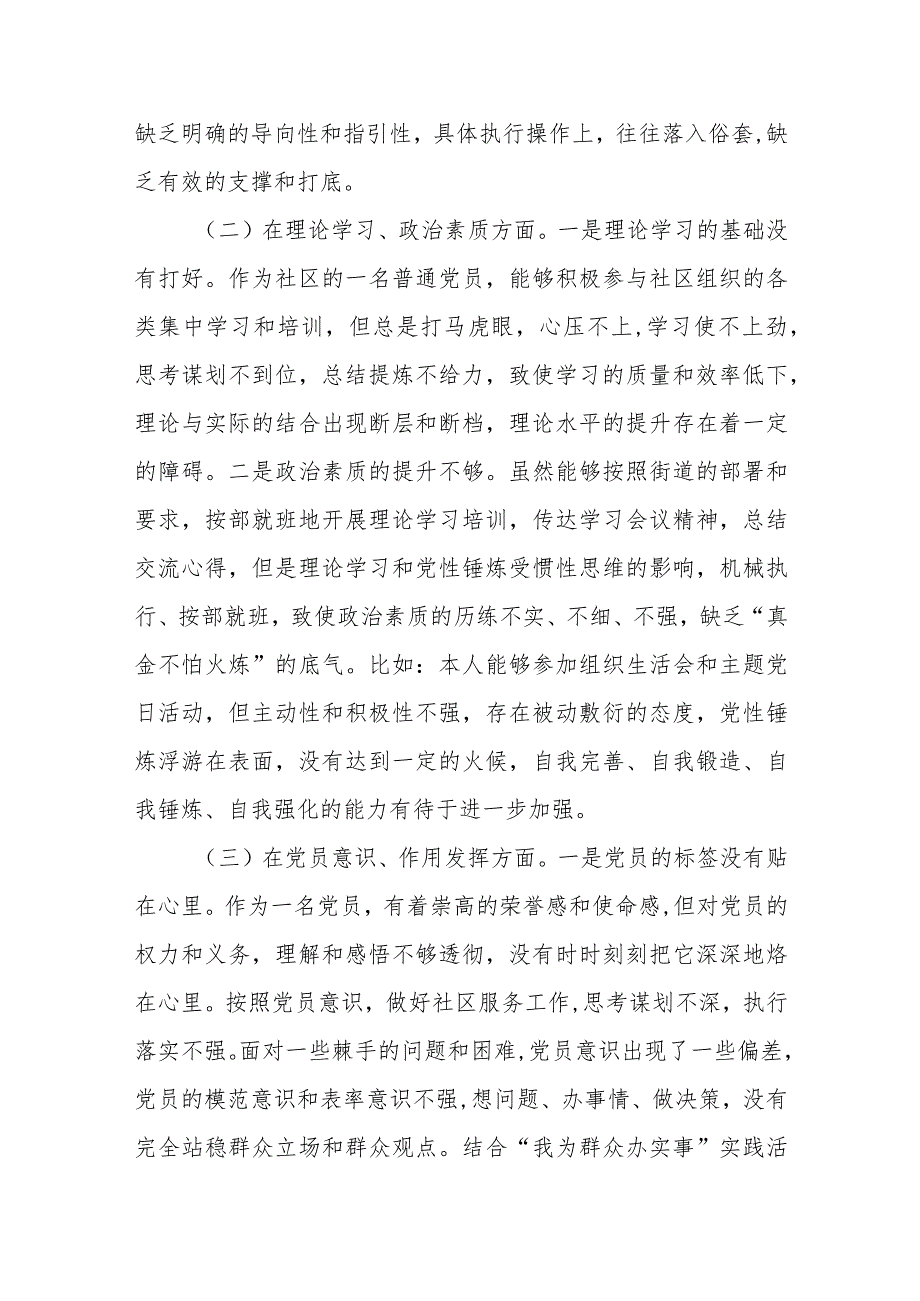 缺乏明确的导向性和指引性，具体执行操作上，往往落入俗套,缺
乏有效的支撑和打底。
（二）在理论学习、政治素质方面。一是理论学习的基础没
有打好。作为社区的一名普通党员，能够积极参与社区组织的各
类集中学习和培训，但总是打马虎眼，心压不上,学习使不上劲,
思考谋划不到位，总结提炼不给力，致使学习的质量和效率低下,
理论与实际的结合出现断层和断档，理论水平的提升存在着一定
的障碍。二是政治素质的提升不够。虽然能够按照街道的部署和
要求，按部就班地开展理论学习培训，传达学习会议精神，总结
交流心得，但是理论学习和党性锤炼受惯性思维的影响，机械执
行、按部就班，致使政治素质的历练不实、不细、不强，缺乏“真
金不怕火炼”的底气。比如：本人能够参加组织生活会和主题党
日活动，但主动性和积极性不强，存在被动敷衍的态度，党性锤
炼浮游在表面，没有达到一定的火候，自我完善、自我锻造、自
我锤炼、自我强化的能力有待于进一步加强。
（三）在党员意识、作用发挥方面。一是党员的标签没有贴
在心里。作为一名党员，有着崇高的荣誉感和使命感,但对党员的
权力和义务，理解和感悟不够透彻，没有时时刻刻把它深深地烙
在心里。按照党员意识，做好社区服务工作,思考谋划不深，执行
落实不强。面对一些棘手的问题和困难,党员意识出现了一些偏差,
党员的模范意识和表率意识不强,想问题、办事情、做决策，没有
完全站稳群众立场和群众观点。结合“我为群众办实事”实践活